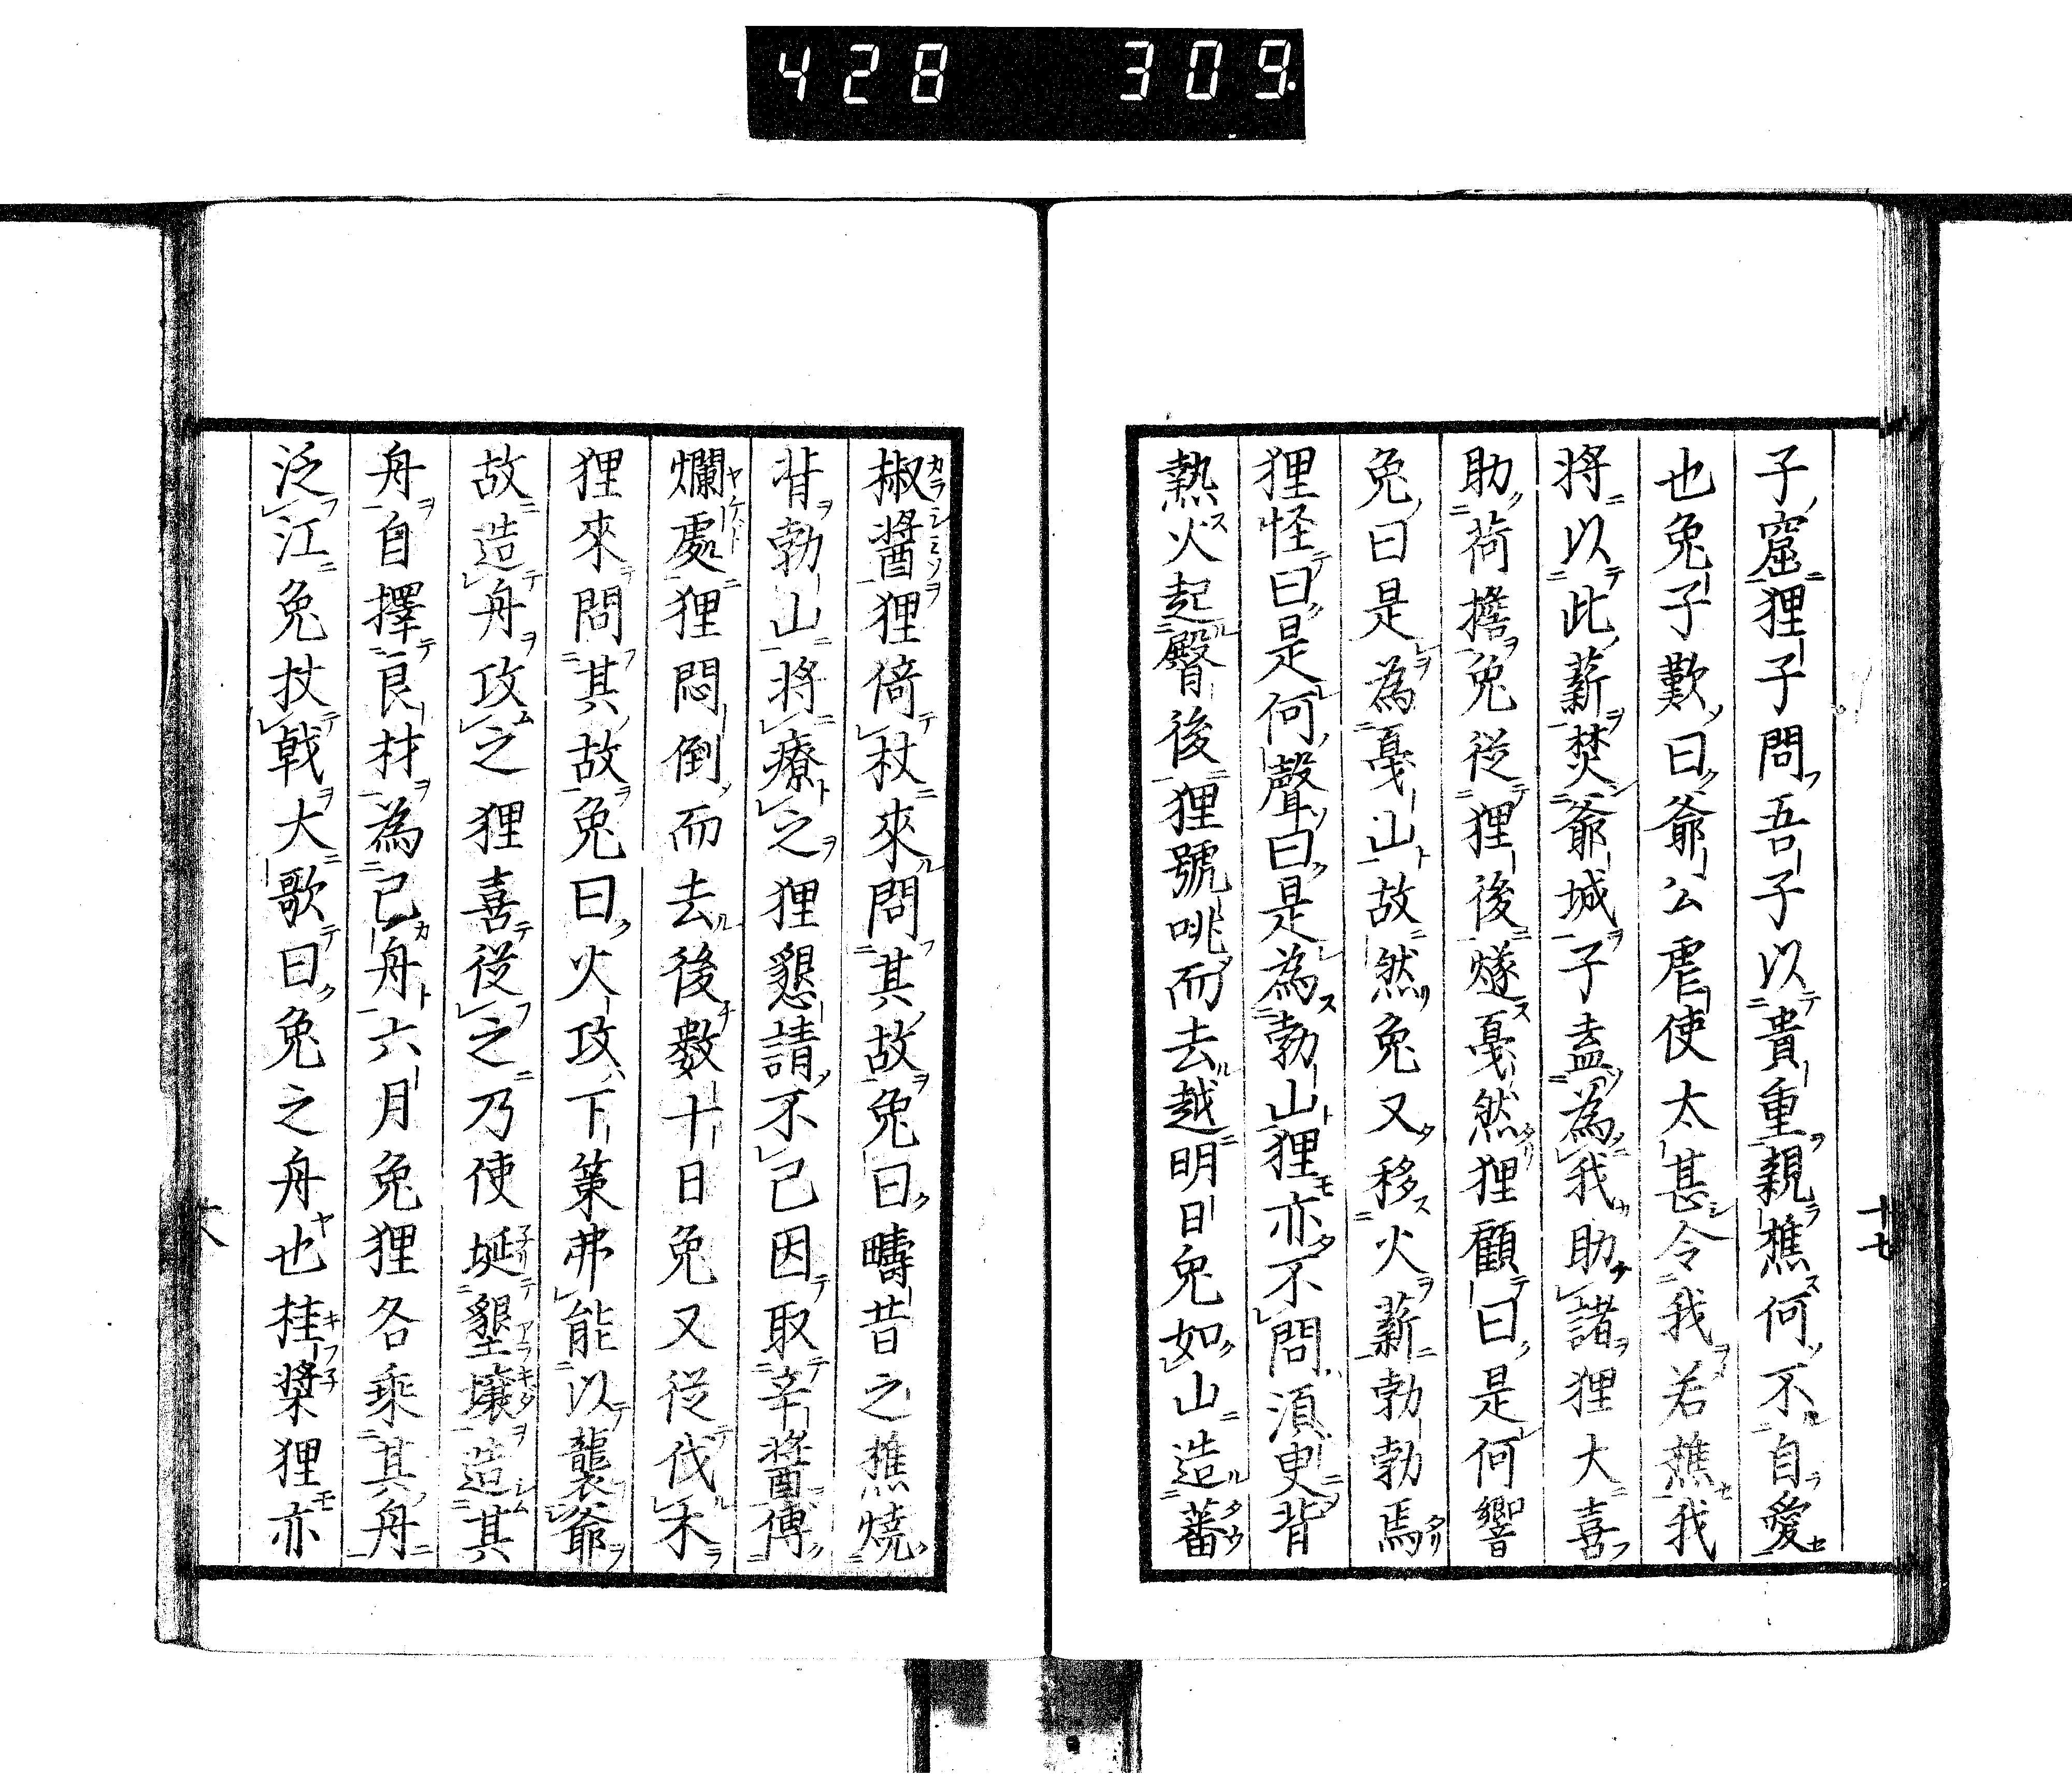 428 309
十七
子窟狸子問吾子以貴重親樵何不自愛
也兔子歎曰爺公虐使太甚令我若樵我
將以此薪焚爺城子盍為我助諸狸大喜
助荷擔兔從狸後燧戞然狸顧曰是何響
兔曰是為戞山故然兔又移火薪勃勃焉
狸怪曰是何聲曰是為勃山狸亦不問湏臾背
熱火起臀後狸號咷而去越明日兔如山造蕃
椒醬狸倚杖來問其故兔曰疇昔之樵燒
背勃山將療之狸懇請不已因取辛醬傅
爛處狸悶倒而去後數十日兔又從伐木
狸來問其故兔曰火攻下策弗能以襲爺
故造舟攻之狸喜從之乃使埏墾壤造其
舟自擇良材為己舟六月兔狸各乘其舟
泛江兔扙戟大歌曰兔之舟也桂槳狸亦